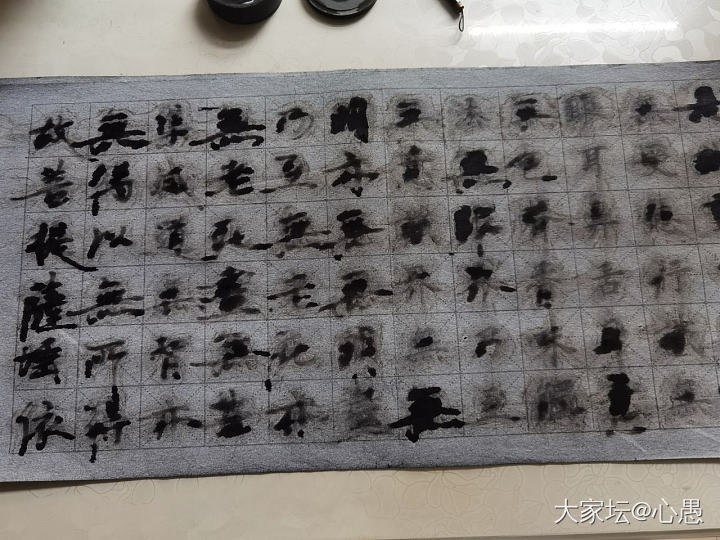 無受想行識無
眼耳鼻舌身意
無色聲香味觸
法無眼界乃至
無意識界無無
明亦無無明盡
乃至無老死亦
無老死盡無苦
集滅道無智亦
無得以無所得
故菩提薩埵依
大家坛@心愚